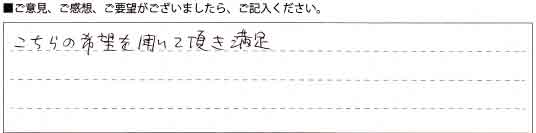 ■ご意見、ご感想、ご要望がございましたら、ご記入ください。
こちらの希望を聞いて頂き満足